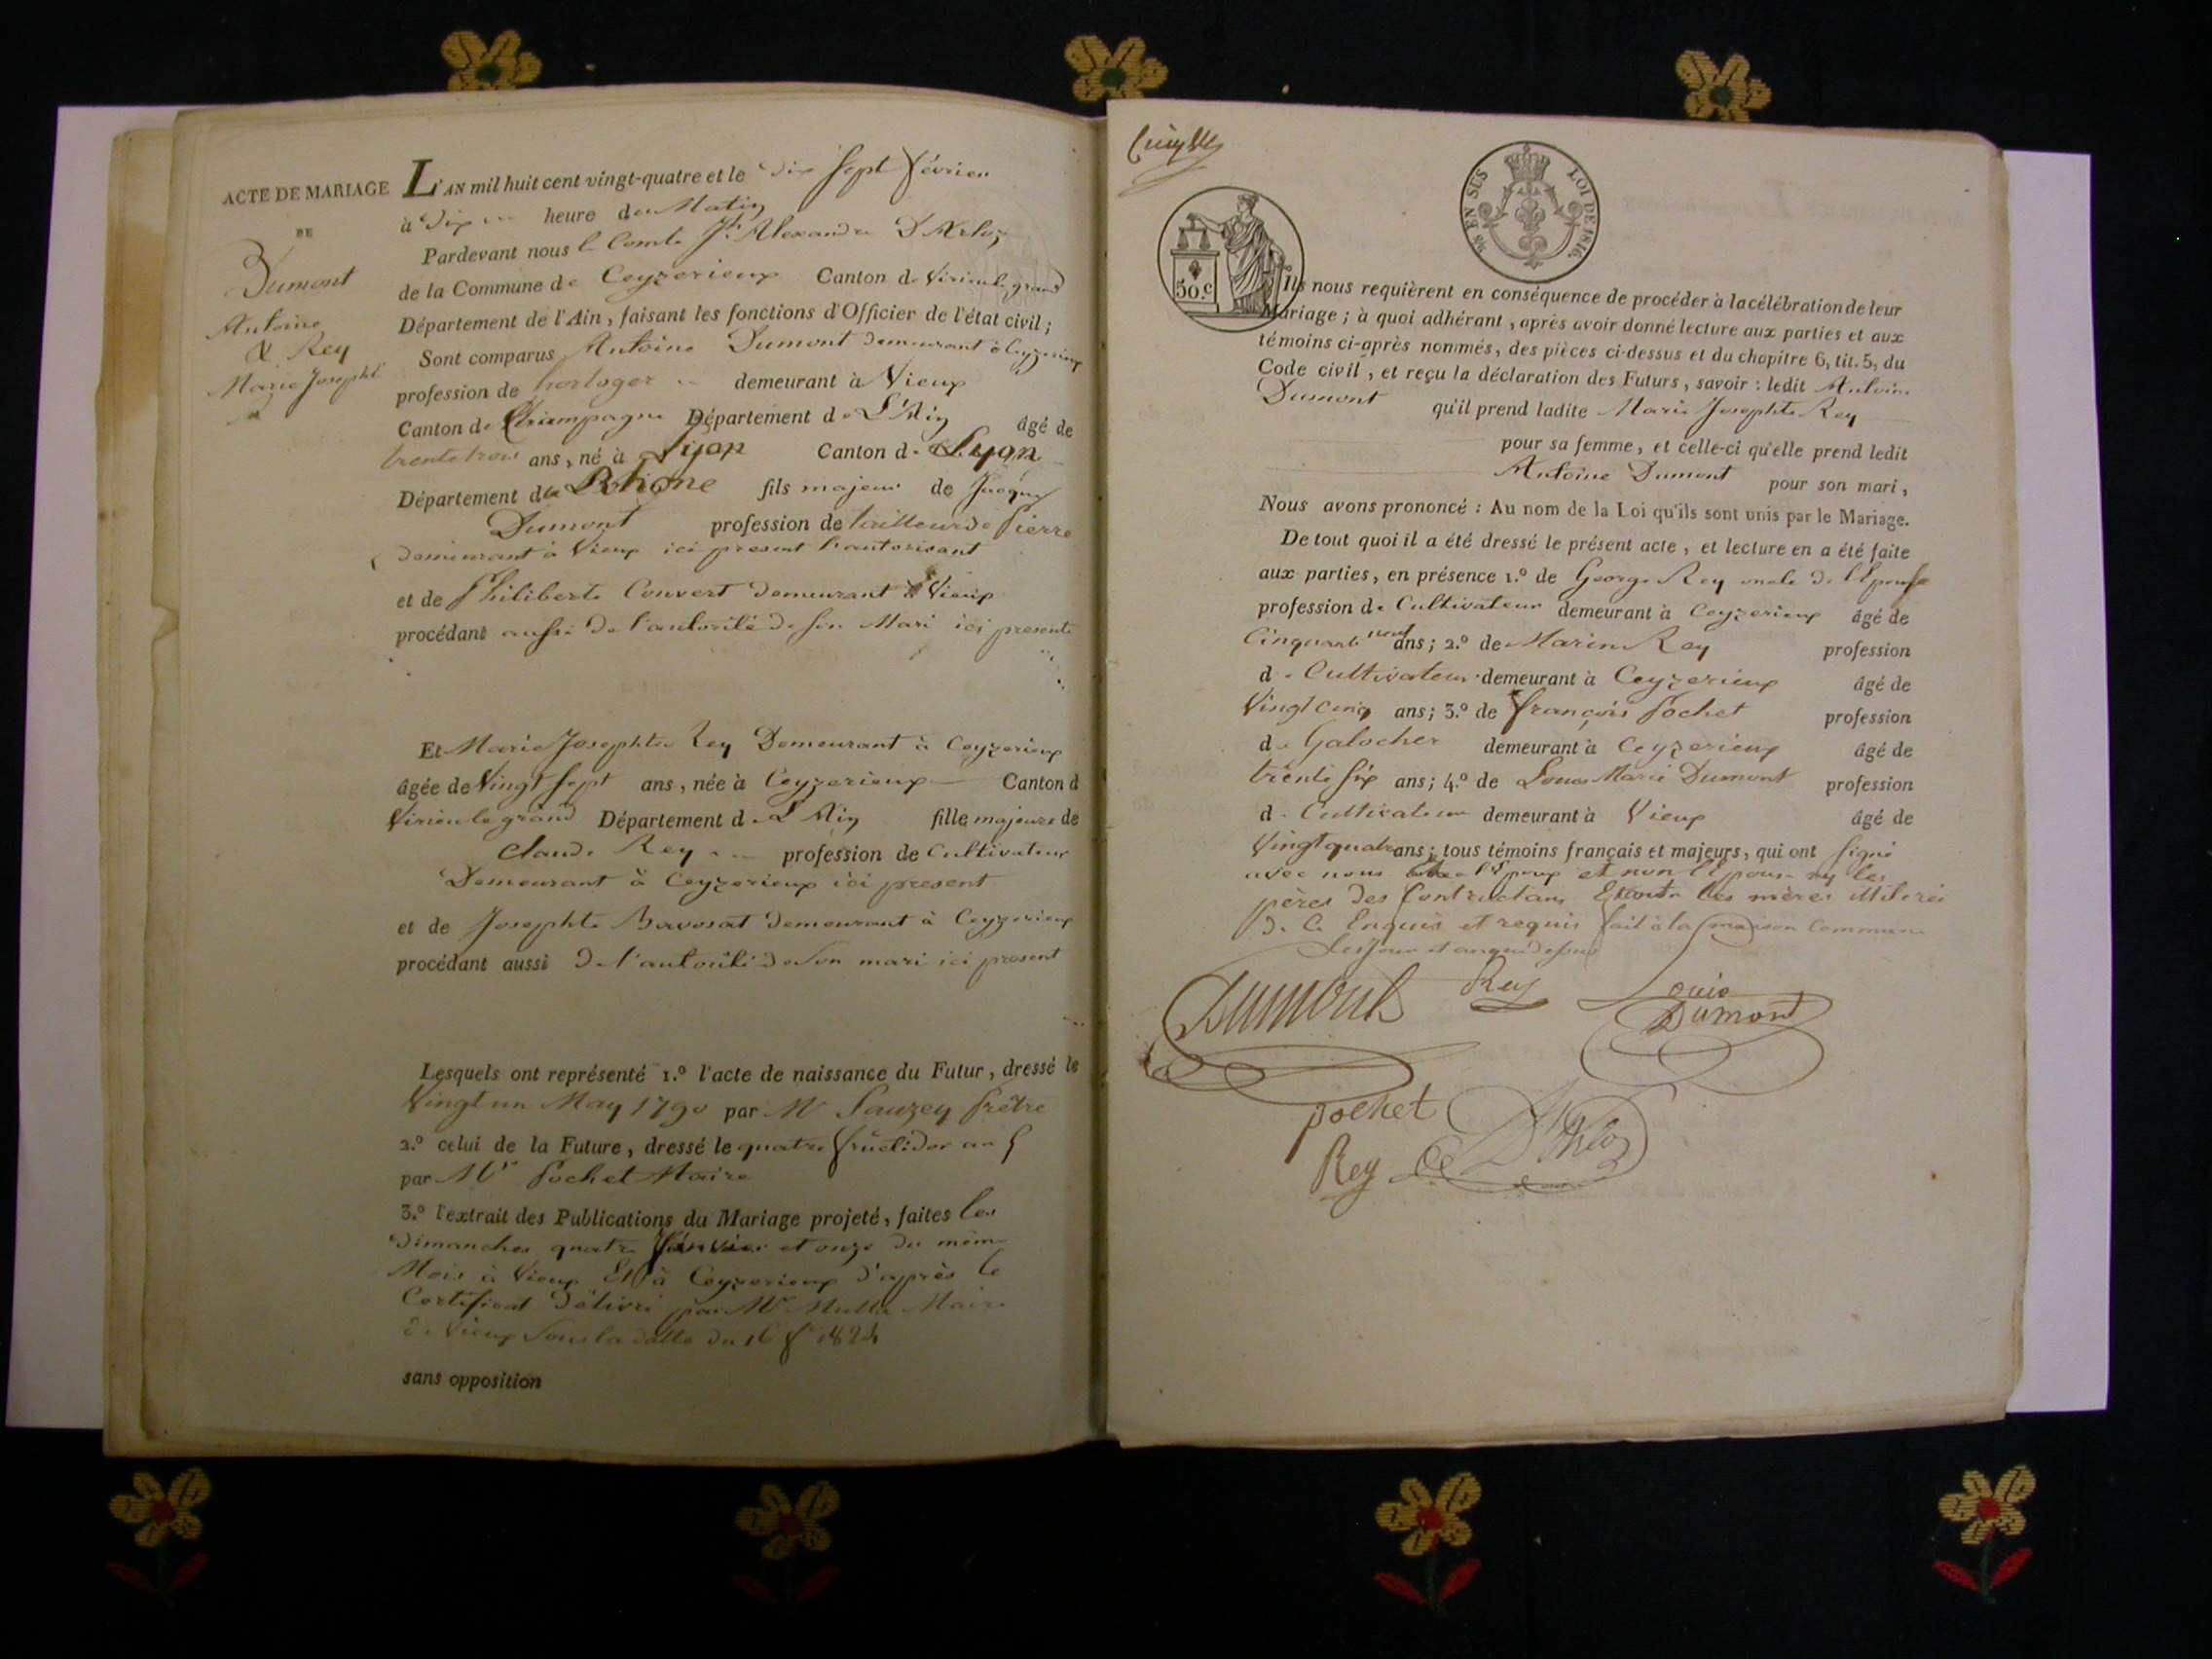 ACTE DE MARIAGE
DE
Dumont
Antoine
& Rey
Marie Josephte
L'AN mil huit cent vingt-quatre et le dix sept février
à dix heure du Matin
Pardevant nous le Comte Alexandre D'Arloz
de la Commune de Ceyzerieux Canton de Virieu le grand
Département de l'Ain, faisant les fonctions d'Officier de l'état civil;
Sont comparus Antoine Dumont demeurant à Ceyzerieux
profession de horloger demeurant à Vieux
Canton de Champagne Département de L'Ain âgé de
trente trois ans, né à Lyon Canton de Lyon
Département du Rhône fils majeur de Jacques
Dumont profession de tailleur de Pierre
demeurant à Vieux ici present l'autorisant
et de Philiberte Convert demeurant à Vieux
procédant aussi de l'autorité de son Mari ici presente
Et Marie Josephte Rey Demeurant à Ceyzerieux
âgée de Vingt sept ans, née à Ceyzerieux Canton d
Virieu le grand Département de L'Ain fille majeure de
Claude Rey profession de Cultivateur
Demeurant à Ceyzerieux ici present
et de Josephte Bavosat demeurant à Ceyzerieux
procédant aussi de l'autorité de son mari ici present
Lesquels ont représenté 1.º l'acte de naissance du Futur, dressé le
Vingt un May 1790 par Mr Sauzey Prêtre
2.º celui de la Future, dressé le quatre fructidor an 5
par Mr Pochet Maire
3.º l'extrait des Publications du Mariage projeté, faites les
dimanches quatre Janvier et onze du même
Mois à Vieux Et à Ceyzerieux d'après le
Certificat délivré par Mr Maire
de Vieux Sous la datte du 16 fr 1824
sans opposition
EN SUS LOI DE 1816.
50.c
Ils nous requièrent en conséquence de procéder à la célébration de leur
Mariage; à quoi adhérant, après avoir donné lecture aux parties et aux
témoins ci-après nommés, des pièces ci-dessus et du chapitre 6, tit. 5, du
Code civil, et reçu la déclaration des Futurs, savoir: ledit Antoine
Dumont qu'il prend ladite Marie Josephte Rey
pour sa femme, et celle-ci qu'elle prend ledit
Antoine Dumont pour son mari,
Nous avons prononcé: Au nom de la Loi qu'ils sont unis par le Mariage.
De tout quoi il a été dressé le présent acte, et lecture en a été faite
aux parties, en présence 1.º de George Rey oncle de l'Epouse
profession de Cultivateur demeurant à Ceyzerieux âgé de
Cinquante neuf ans; 2.º de Marin Rey profession
de Cultivateur demeurant à Ceyzerieux âgé de
Vingt cinq ans; 3.º de françois Pochet profession
de Galocher demeurant à Ceyzerieux âgé de
trente six ans; 4.º de Louis Marie Dumont profession
de Cultivateur demeurant à Vieux âgé de
Vingt quatre ans; tous témoins français et majeurs, qui ont signé
avec nous l'Epoux et non l'Epouse ny les
pères des Contractans les mères illiterés
de Ce Enquis et requis fait à la maison Commune
les jour et an que dessus
Dumont Rey Louis
Dumont
pochet
Rey Ce D'Arloz